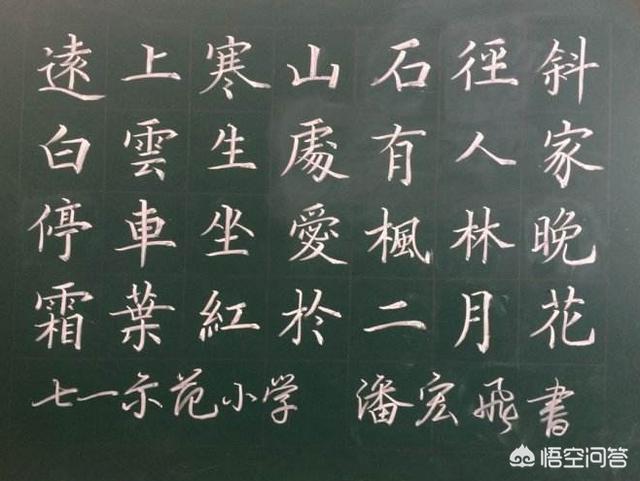 遠上寒山石徑斜
白雲生處有人家
停車坐愛楓林晚
霜葉紅於二月花
七一示范小学 潘宏飛書
悟空问答